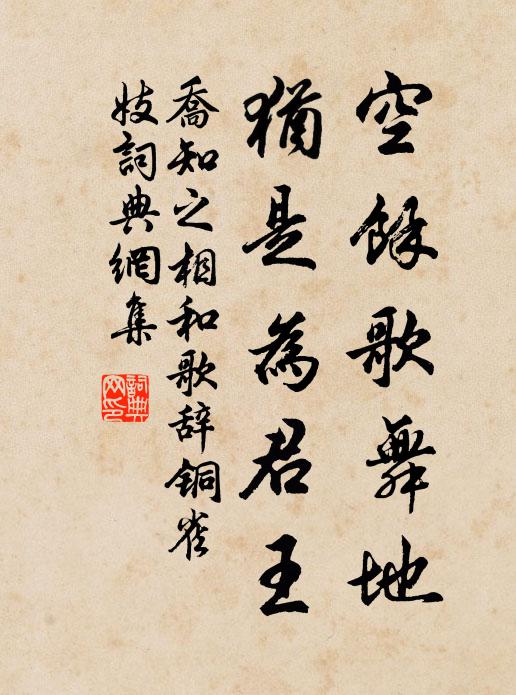 空餘歌舞地
猶是為君王
喬知之相和歌辞銅雀
妓詞典網集
詞典
网印